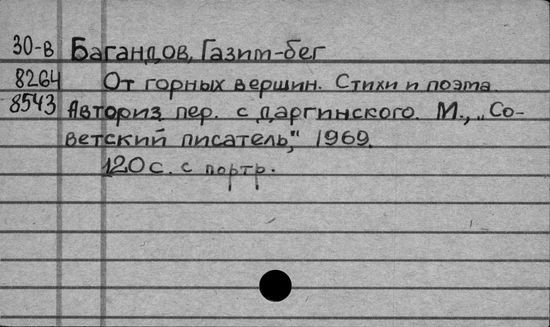 30-в Багандов, Газим-бег
8264 От горных вершин. Стихи и поэта.
8543 Авториз. пер. с даргинского. М., „Со-
ветский писатель," 1969.
120 с. с портр.